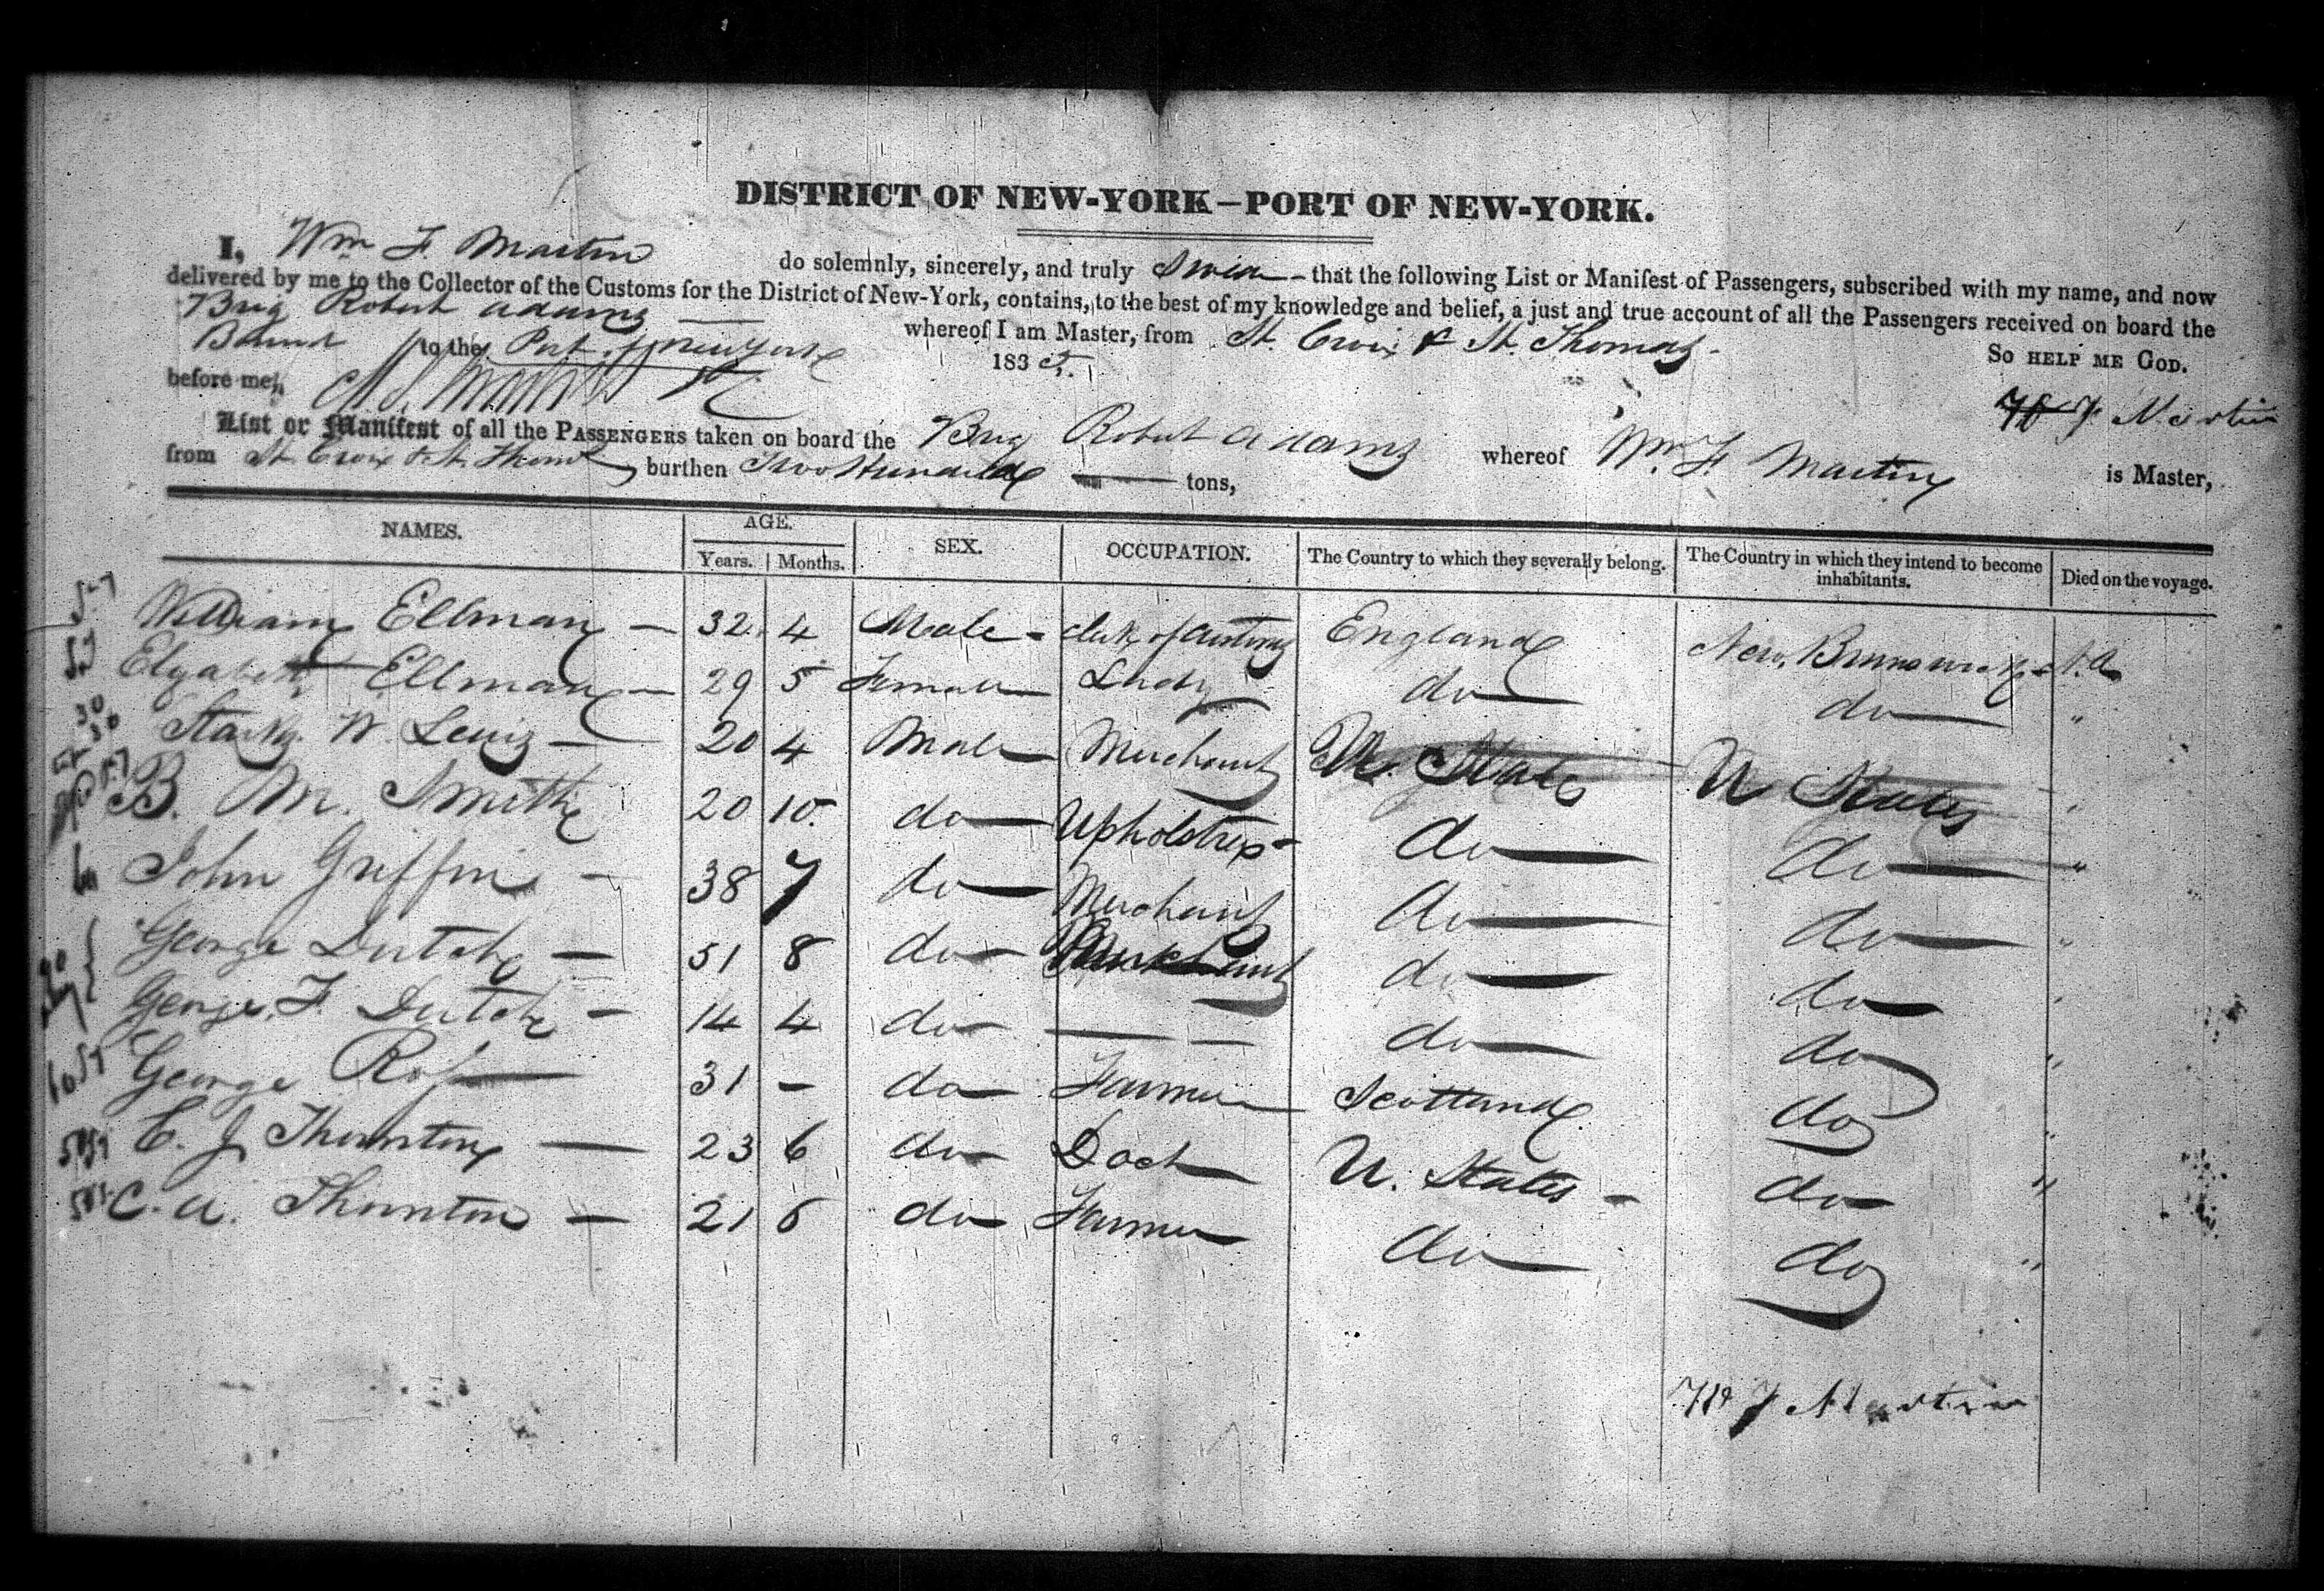 DISTRICT OF NEW-YORK—PORT OF NEW-YORK.
I, Wm F. Martin do solemnly, sincerely, and truly Swear – that the following List or Manifest of Passengers, subscribed with my name, and now
delivered by me to the Collector of the Customs for the District of New-York, contains, to the best of my knowledge and belief, a just and true account of all the Passengers received on board the
Brig Robert Adams whereof I am Master, from St. Croix & St. Thomas.
Bound to the Port of New York 1835. So HELP ME GOD.
before me, F Martin
List or Manifest of all the PASSENGERS taken on board the Brig Robert Adams whereof Wm F Martin is Master,
from St. Croix & St. Thomas burthen Two Hundred tons,
NAMES. AGE. Years. Months. SEX. OCCUPATION. The Country to which they severally belong. The Country in which they intend to become inhabitants. Died on the voyage.
William Ellman — 32. 4 Male - England New Brunswick - N.A
Elizabeth Ellman — 29 5 Female Lady do do "
W. Lewis — 20 4 Male Merchant U. States U States "
B. M. Smith 20 10. do do do "
John Griffin — 38 7 do Merchant do do "
George Dutch — 51 8 do Merchant do do "
George F. Dutch — 14 4 do — — do do "
George Ross 31 – do Farmer Scotland do "
E. J Thurnton — 23 6 do Doct U. States – do "
C. A. Thurnton — 21 6 do Farmer do do "
F Martin